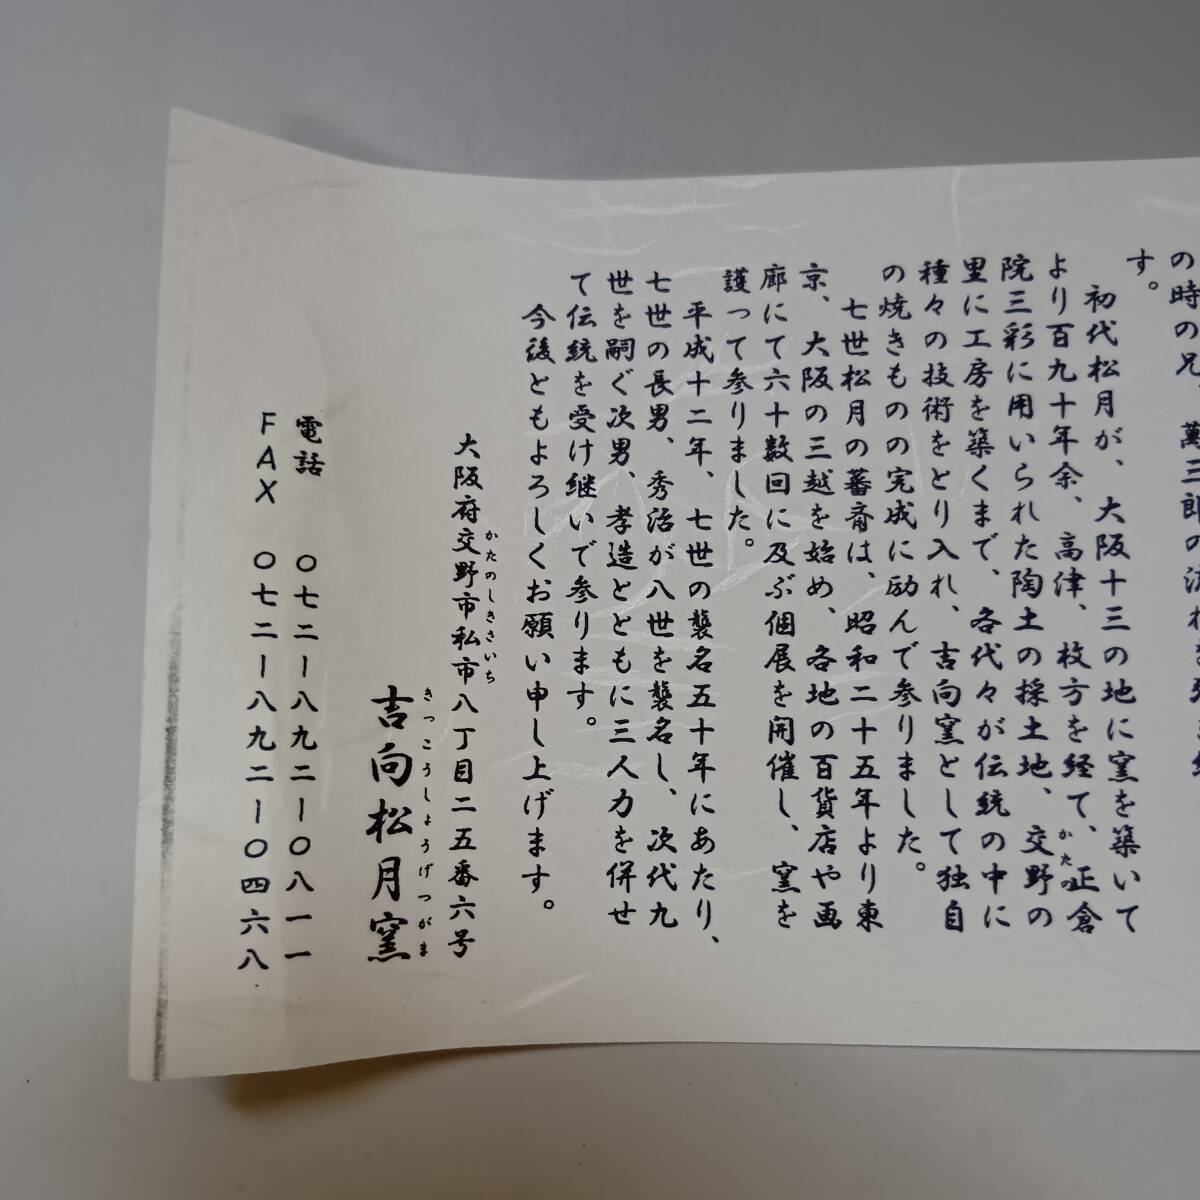 の時の兄
萬三郎の流れを
す。
初代松月が、大阪十三の地に窯を築いて
より百九十年余、高津、枚方を経て、正倉
院三彩に用いられた陶土の採土地、交野の
かたの
里に工房を築くまで、各代々が伝統の中に
種々の技術をとり入れ、吉向窯として独自
の焼きものの完成に励んで参りました。
七世松月の蕃斎は、昭和二十五年より東
京、大阪の三越を始め、各地の百貨店や画
廊にて六十数回に及ぶ個展を開催し、窯を
護って参りました。
平成十二年、七世の襲名五十年にあたり、
七世の長男、秀治が八世を襲名し、次代九
世を嗣ぐ次男、孝造とともに三人力を併せ
て伝統を受け継いで参ります。
今後ともよろしくお願い申し上げます。
かたのしきさいち
大阪府交野市私市八丁目二五番六号
きっこうしょうげつがま
吉向松月窯
電話 〇七二ー八九二ー〇八一一
FAX 〇七二ー八九二ー〇四六八